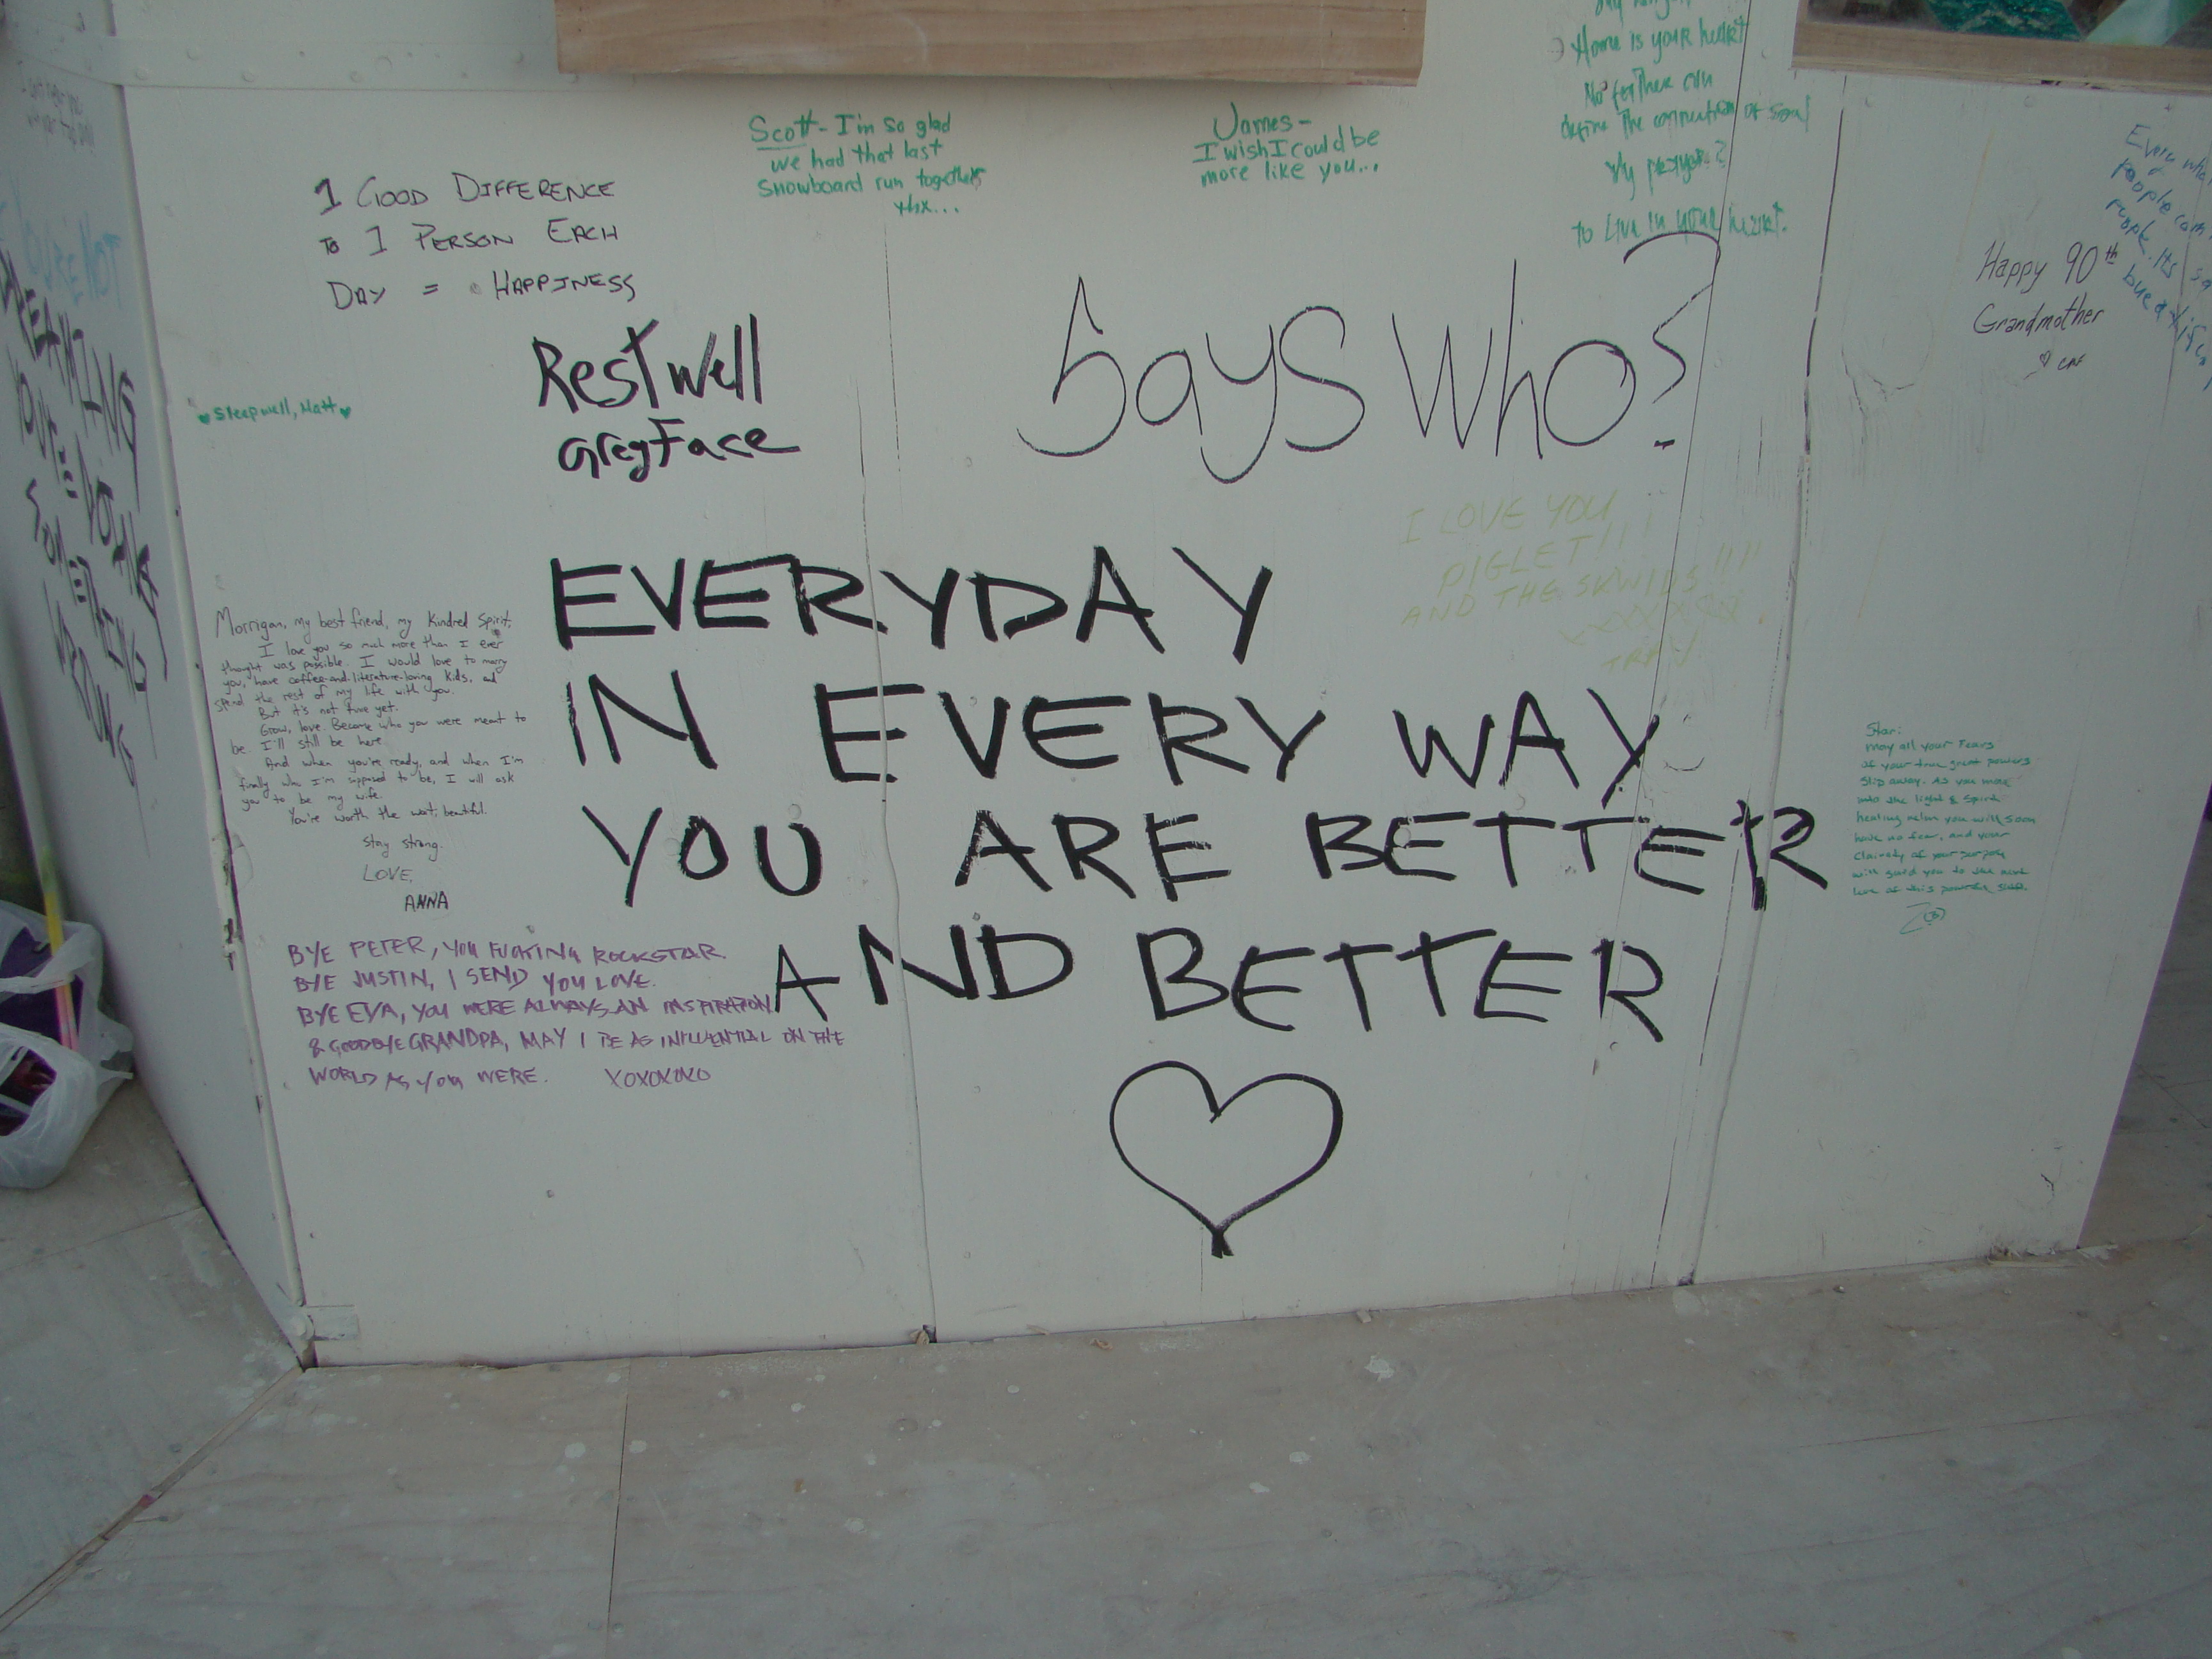 Home is your heart
No further can
define the connection of soul
My prayer?
to Live in your heart.
Scott - I'm so glad
we had that last
snowboard run together
thx...
James -
I wish I could be
more like you...
1 GOOD DIFFERENCE
TO 1 PERSON EACH
DAY = HAPPINESS
Rest well
Greyface
Says Who?
Happy 90th
Grandmother
people
YOU'RE NOT
DREAMING
YOU'RE DOING
SOMETHING
WRONG
Sleep well, Matt
I LOVE YOU
PIGLET!!!
AND THE SKWIDS!!!!
EVERYDAY
IN EVERY WAY
YOU ARE BETTER
AND BETTER
Morrigan, my best friend, my Kindred Spirit.
I love you so much more than I ever
thought was possible. I would love to marry
you, have coffee-and-literature-loving kids, and
spend the rest of my life with you.
But it's not time yet.
Grow, love. Become who you were meant to
be I'll still be here
And when you're ready, and when I'm
finally who I'm supposed to be, I will ask
you to be my wife.
You're worth the wait, beautiful.
Stay strong.
LOVE,
ANNA
BYE PETER, YOU FUCKING ROCKSTAR.
BYE JUSTIN, I SEND YOU LOVE.
BYE EVA, YOU WERE ALWAYS AN INSPIRATION
& GOODBYE GRANDPA, MAY I BE AS INFLUENTIAL ON THE
WORLD AS YOU WERE. XOXOXOXO
Star:
may all your Fears
of your true great powers
slip away. As you move
into the light & Spirit
healing relm you will soon
have no fear, and your
clairety of your purpose
will guid you to the next